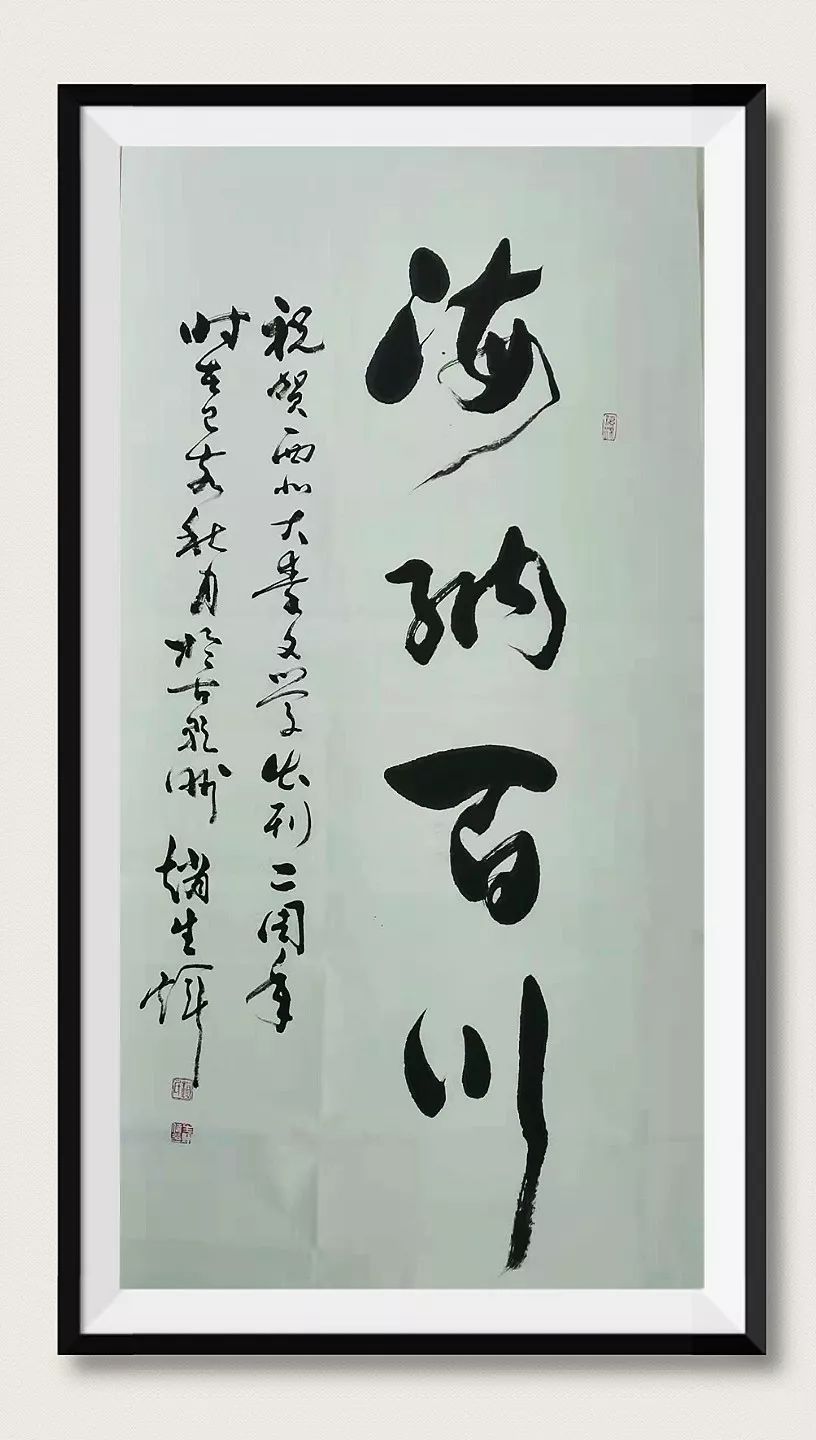 海纳百川
祝贺西北大秦文学出刊二周年
时在己亥秋月于古泉州
赵生辉